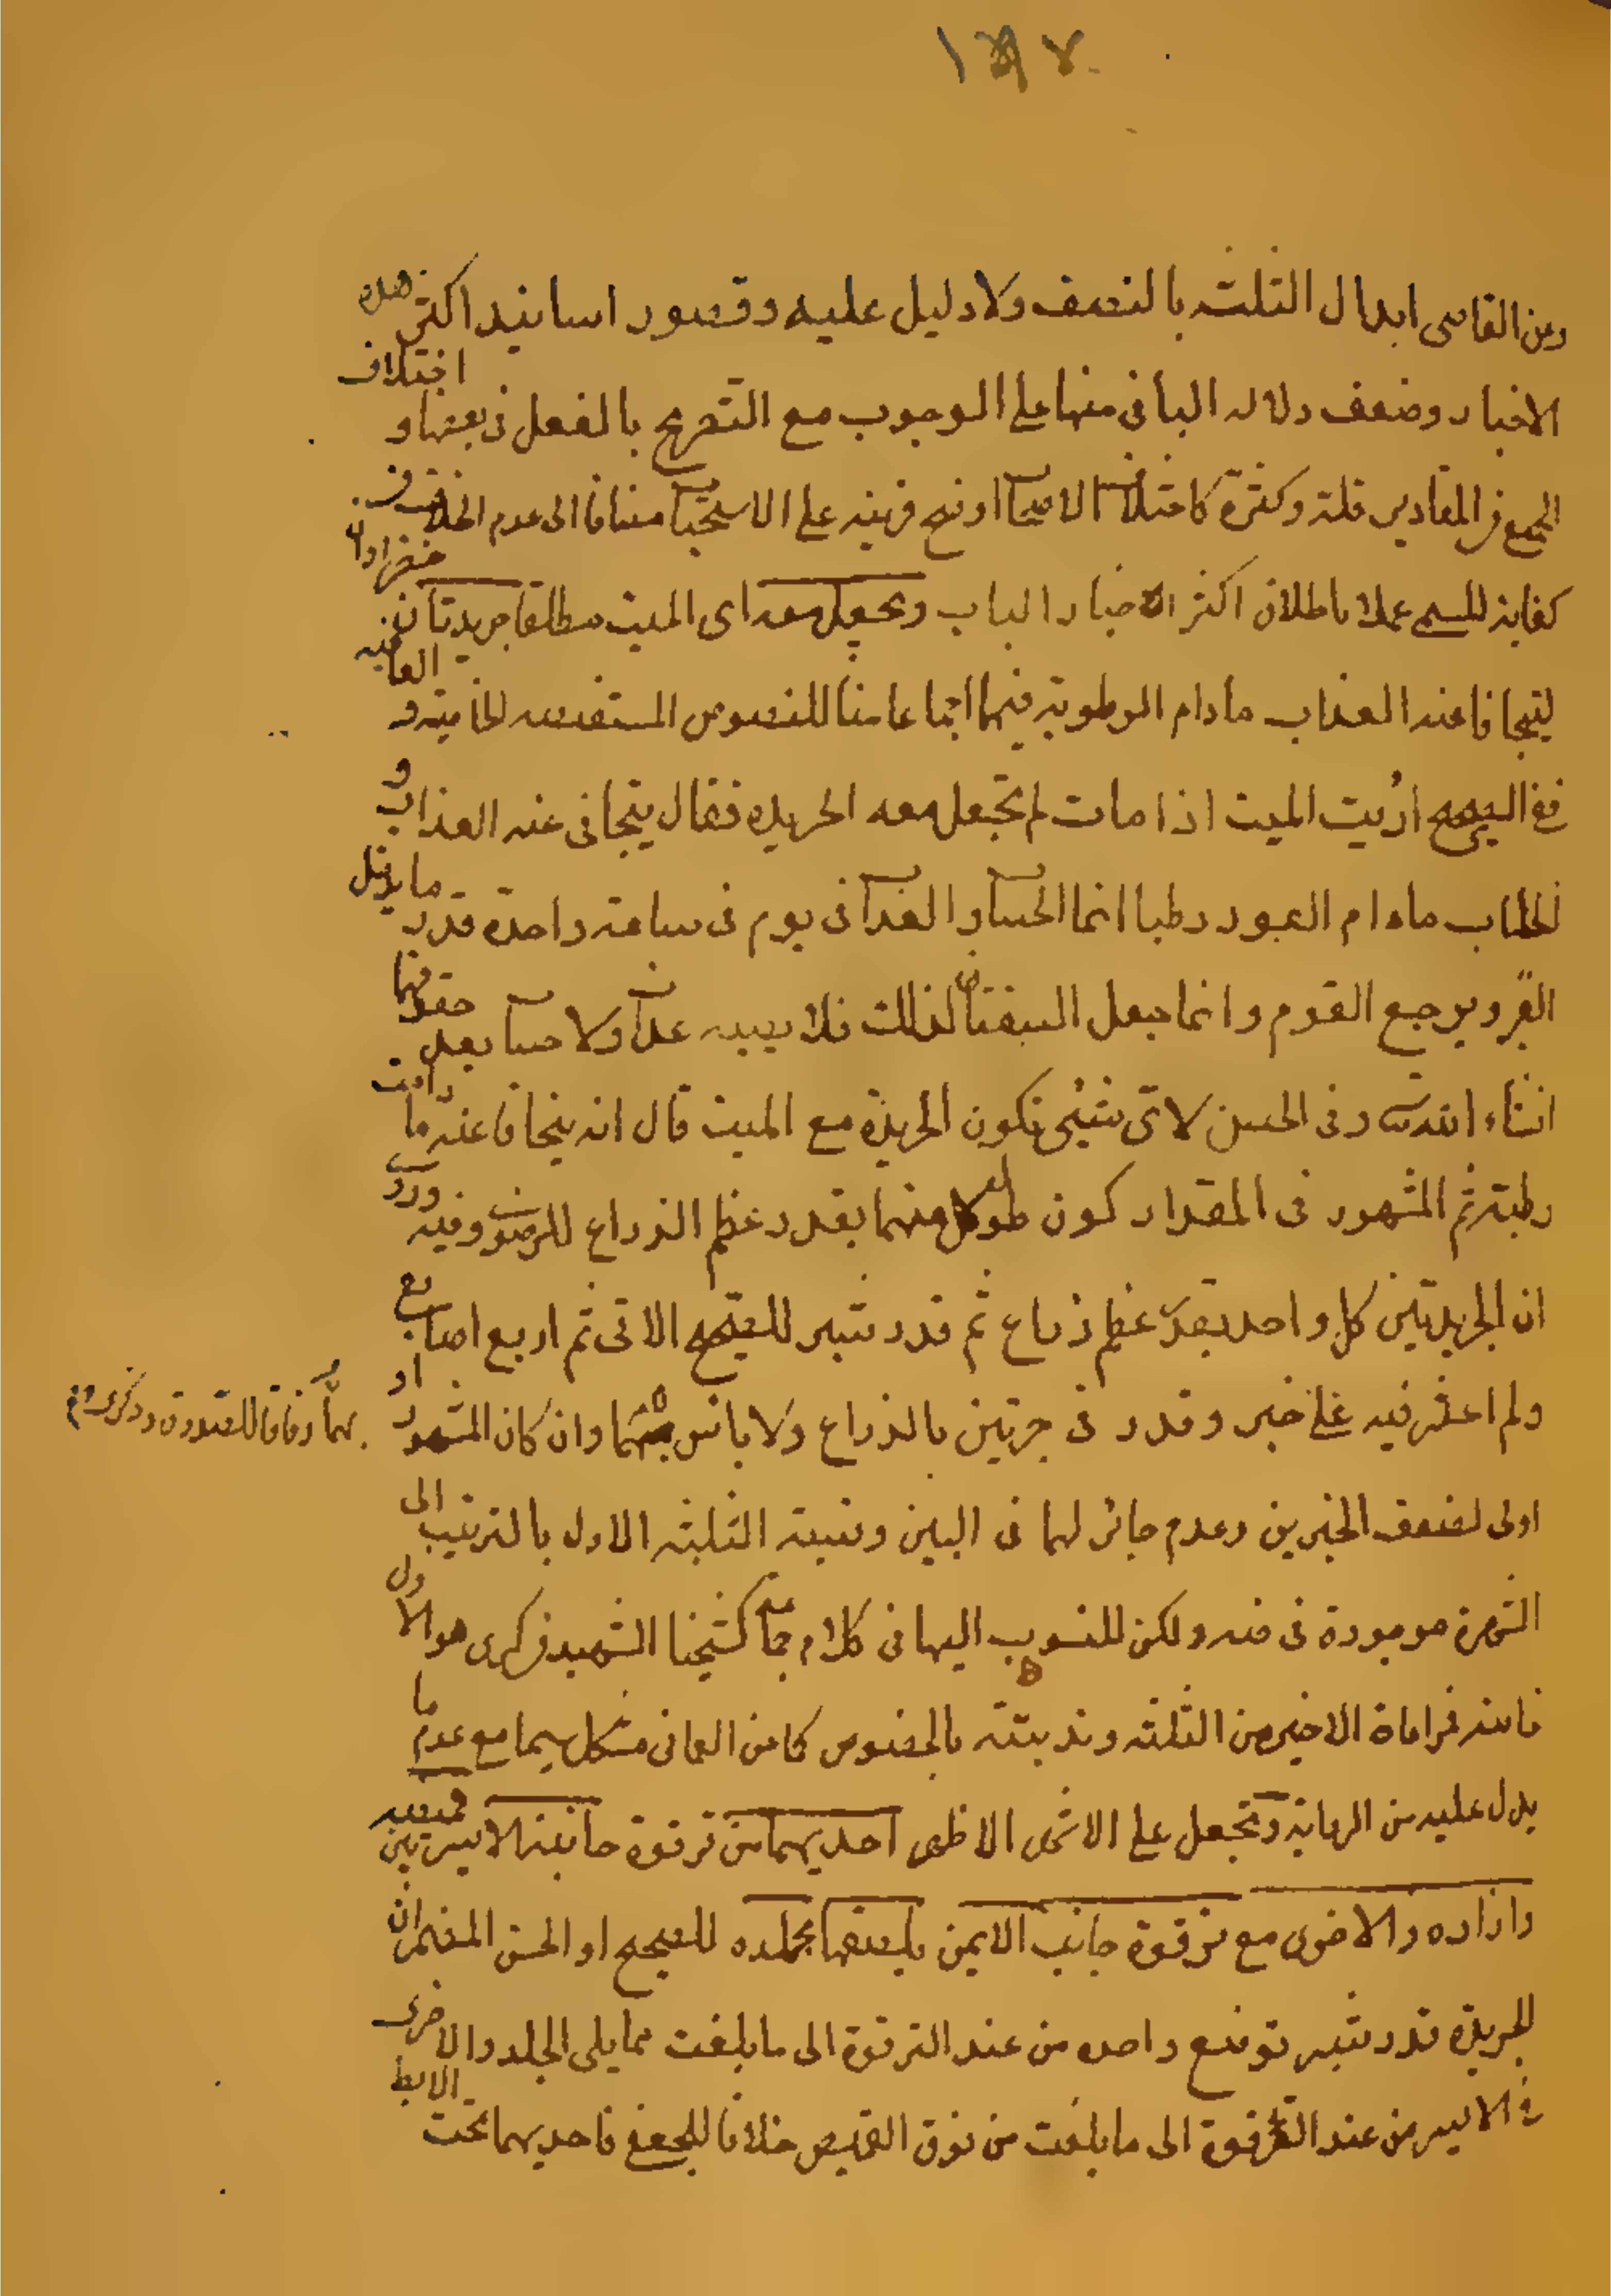 وعن القاضى ابدال الثلث بالنصف ولا دليل عليه وقصور اسانيد اكثر هذه
الاخبار وضعف دلاله الباقى منها على الوجوب مع التصريح بالفعل فى بعضها و اختلاف
الجمع فى المقادير قلة وكثرة كاختلاف الاصحاب اوضح قرينه على الاستحباب مضافا الى عدم الخلاف فى
كفاية المسمى عملا باطلاق اكثر الاخبار الباب ويجعل معه اى الميت مطلقا جريدتان خضراوان
ليتجافا عنه العذاب مادام الرطوبة فيهما اجماعا منا للنصوص المستفيضه الخاصية و العامية
ففى الصحيح ارٔيت الميت اذا مات لم تجعل معه الجريده فقال يتجافى عنه العذاب و
الحساب مادام العود رطبا انما الحساب والعذاب فى يوم فى ساعة واحدة قدر ما يدخل
القبر ويرجع القوم وانما جعل السعفتان لذلك فلا يصيبه عذاب ولا حساب بعد جفوفهما
انشاء الله تعالى وفى الحسن لاى شئى تكون الجريدة مع الميت قال انه يتجافا عنه ما دامت
رطبة ثم المشهور فى المقدار كون طول كل منهما بقدر عظم الذراع للرضوى وفيه وروى
ان الجريدتين كل واحد بقدر عظم ذراع ثم قدر شبر للصحيح الاتى ثم اربع اصابع
ولم اعثر فيه على خبر وقدر فى خبرين بالذراع ولا باس بهما وان كان المشهور او
بهما وفاقا للصدوق وذكرى
اولى لضعف الخبرين وعدم جابر لهما فى البين ونسبة الثلثه الاول بالترتيب الى
الشهرة موجودة فى ولكن المنسوب اليها فى كلام جماعة كشيخنا الشهيد فى كرى هو الاول
خاصة فراعاة الاخير من الثلثه وندبيته بالخصوص كما عن العمانى مشكل سيما مع عدم ما
يدل عليه من الرواية وتجعل على الاشهر الاظهر احديهما من ترقوة جانبه الايسر بين قميصه
وازاره والاخرى مع ترقوة جانبه الايمن يلصقها بجلده للصحيح او الحسن المضمر ان
الجريدة قدر شبر توضع واحده من عند الترقوة الى ما بلغت مما يلى الجلد والاخرى
فى الايسر من عند الترقوة الى ما بلغت من فوق القميص خلافا للجعفى فاحديهما تحت الابط